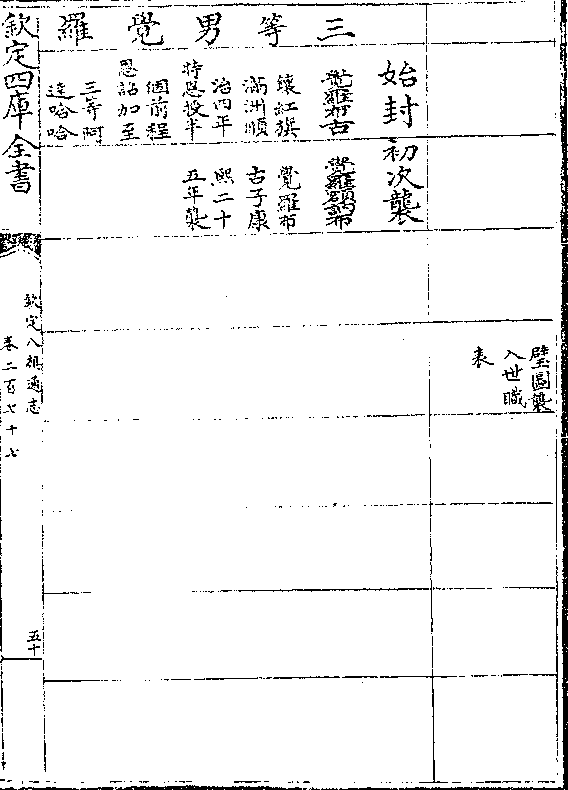 璧圖襲
入世職
表
三等男覺羅
始封
覺羅布古
鑲紅旗
滿洲順
治四年
特恩授半
個前程
恩詔加至
三等阿
達哈哈
初次襲
覺羅
覺羅布
古子康
熙二十
五年襲
欽定四庫全書
欽定八旗通志
卷二百七十七
五十